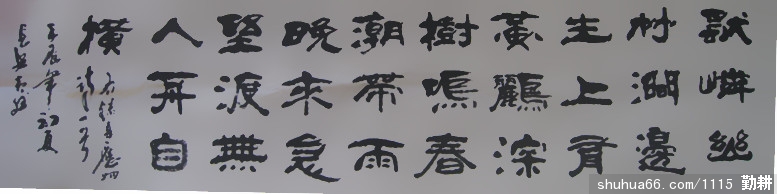 獨憐幽
草澗邊
生上有
黃鸝深
樹鳴春
潮帶雨
晚來急
野渡無
人舟自
橫
右錄韋應物
詩一首
壬辰年初夏
shuhua66.com/1115 勤耕